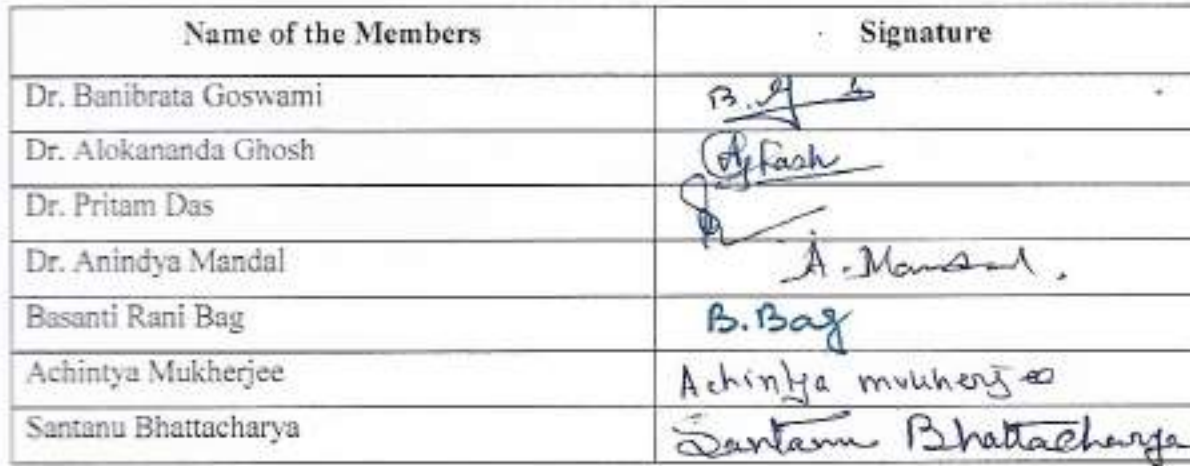 Name of the Members Signature
Dr. Banibrata Goswami B.
Dr. Alokananda Ghosh
Dr. Pritam Das
Dr. Anindya Mandal A. Mandal.
Basanti Rani Bag B. Bag
Achintya Mukherjee Achintya mukherjee
Santanu Bhattacharya Santanu Bhattacharya